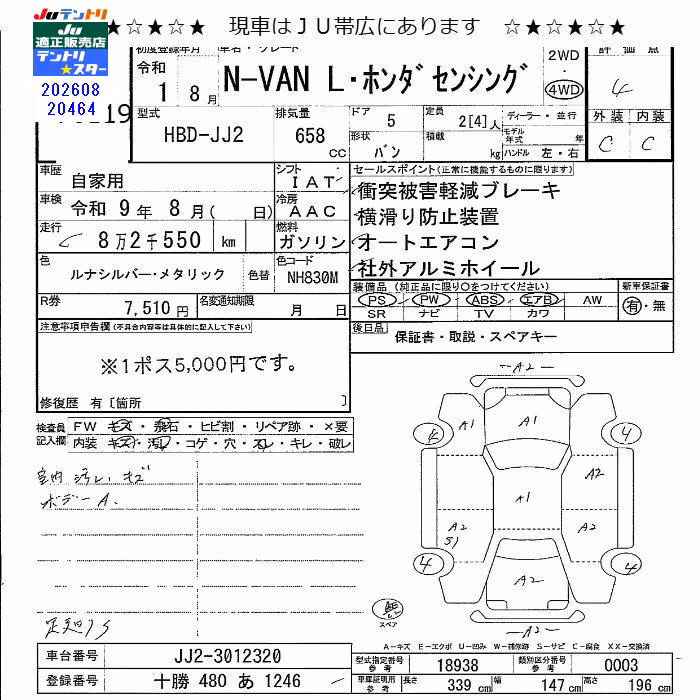 Juテントリ
★☆★☆★ 現車はＪＵ帯広にあります ☆★☆★☆★
Ju
適正販売店
テントリ
★スター
202608
20464
初度登録年月
車名・グレード
令和
1 8月
N-VAN L・ホンダセンシング
2WD
・
4WD
評価点
4
外装 内装
C C
型式
HBD-JJ2
排気量
658
CC
ドア
5
定員
2[4]人
ディーラー・並行
モデル年式
年
形状
バン
積載
kg
ハンドル 左・右
車歴
自家用
シフト
IAT
車検
令和 9年 8月( 日)
冷房
AAC
走行
8万2千550 km
燃料
ガソリン
色
ルナシルバー・メタリック
色替
色コード
NH830M
R券
7,510円
名変通知期限
月 日
セールスポイント(正常に機能するものに限ります)
衝突被害軽減ブレーキ
横滑り防止装置
オートエアコン
社外アルミホイール
装備品(純正品に限り○をつけてください)
PS PW ABS エアB AW
SR ナビ TV カワ
新車保証書
有・無
後日品
保証書・取説・スペアキー
注意事項申告欄(不具合内容等は具体的に記入して下さい)
※1ポス5,000円です。
修復歴 有〔箇所 〕
検査員
記入欄
FW キズ・飛石・ヒビ割・リペア跡・×要
内装 キズ・汚レ・コゲ・穴・スレ・キレ・破レ
室内 汚レ、キズ
ボデーA.
A2
A1
A1
4
4
A2
A1
A2
A2
S)
4
4
A2
A2
無
スペア
A-キズ E-エクボ U-凹み W-補修跡 S-サビ C-腐食 XX-交換済
車台番号
JJ2-3012320
登録番号
十勝 480 あ 1246
型式指定番号
参考
18938
類別区分番号
参考
0003
車庫証明用
参考
長さ
339 cm
幅
147 cm
高さ
196 cm